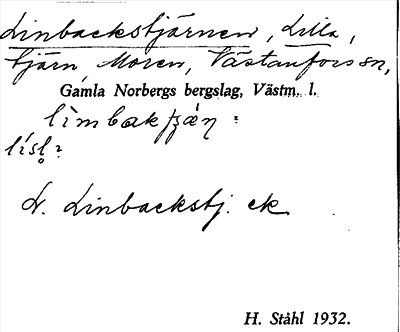 Linbackstjärnen, Lilla,
tjärn, Moren, Västanfors sn,
Gamla Norbergs bergslag, Västm. l.
L. Linbackstj. ek
H. Ståhl 1932.